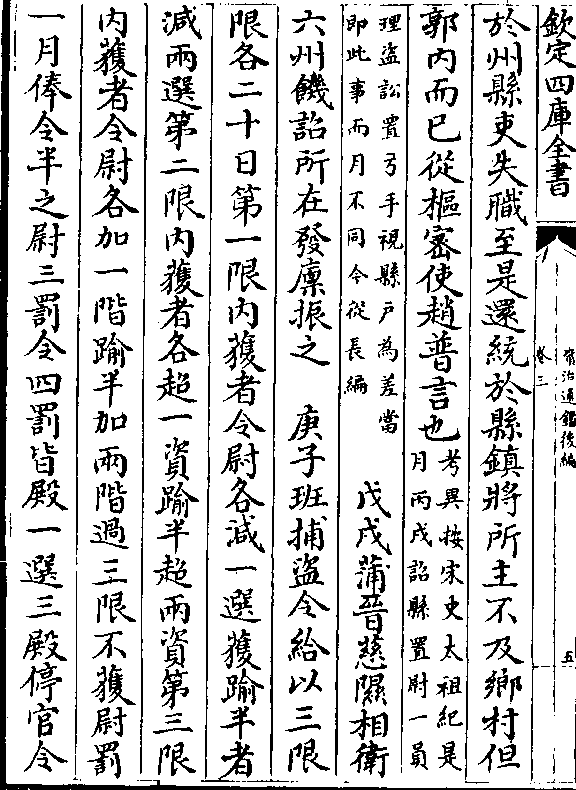 欽定四庫全書
資治通鑑後編
卷三
五
於州縣吏失職至是還統於縣鎮將所主不及鄉村但
郭内而已從樞密使趙普言也
考異按宋史太祖紀是
月丙戌詔縣置尉一員
理盜訟置弓手視縣戶為差當
即此事而月不同今從長編
戊戌蒲晉慈隰相衛
六州饑詔所在發廩振之　庚子班捕盜令給以三限
限各二十日第一限内獲者令尉各減一選獲踰半者
減兩選第二限内獲者各超一資踰半超兩資第三限
内獲者令尉各加一階踰半加兩階過三限不獲尉罰
一月俸令半之尉三罰令四罰皆殿一選三殿停官令